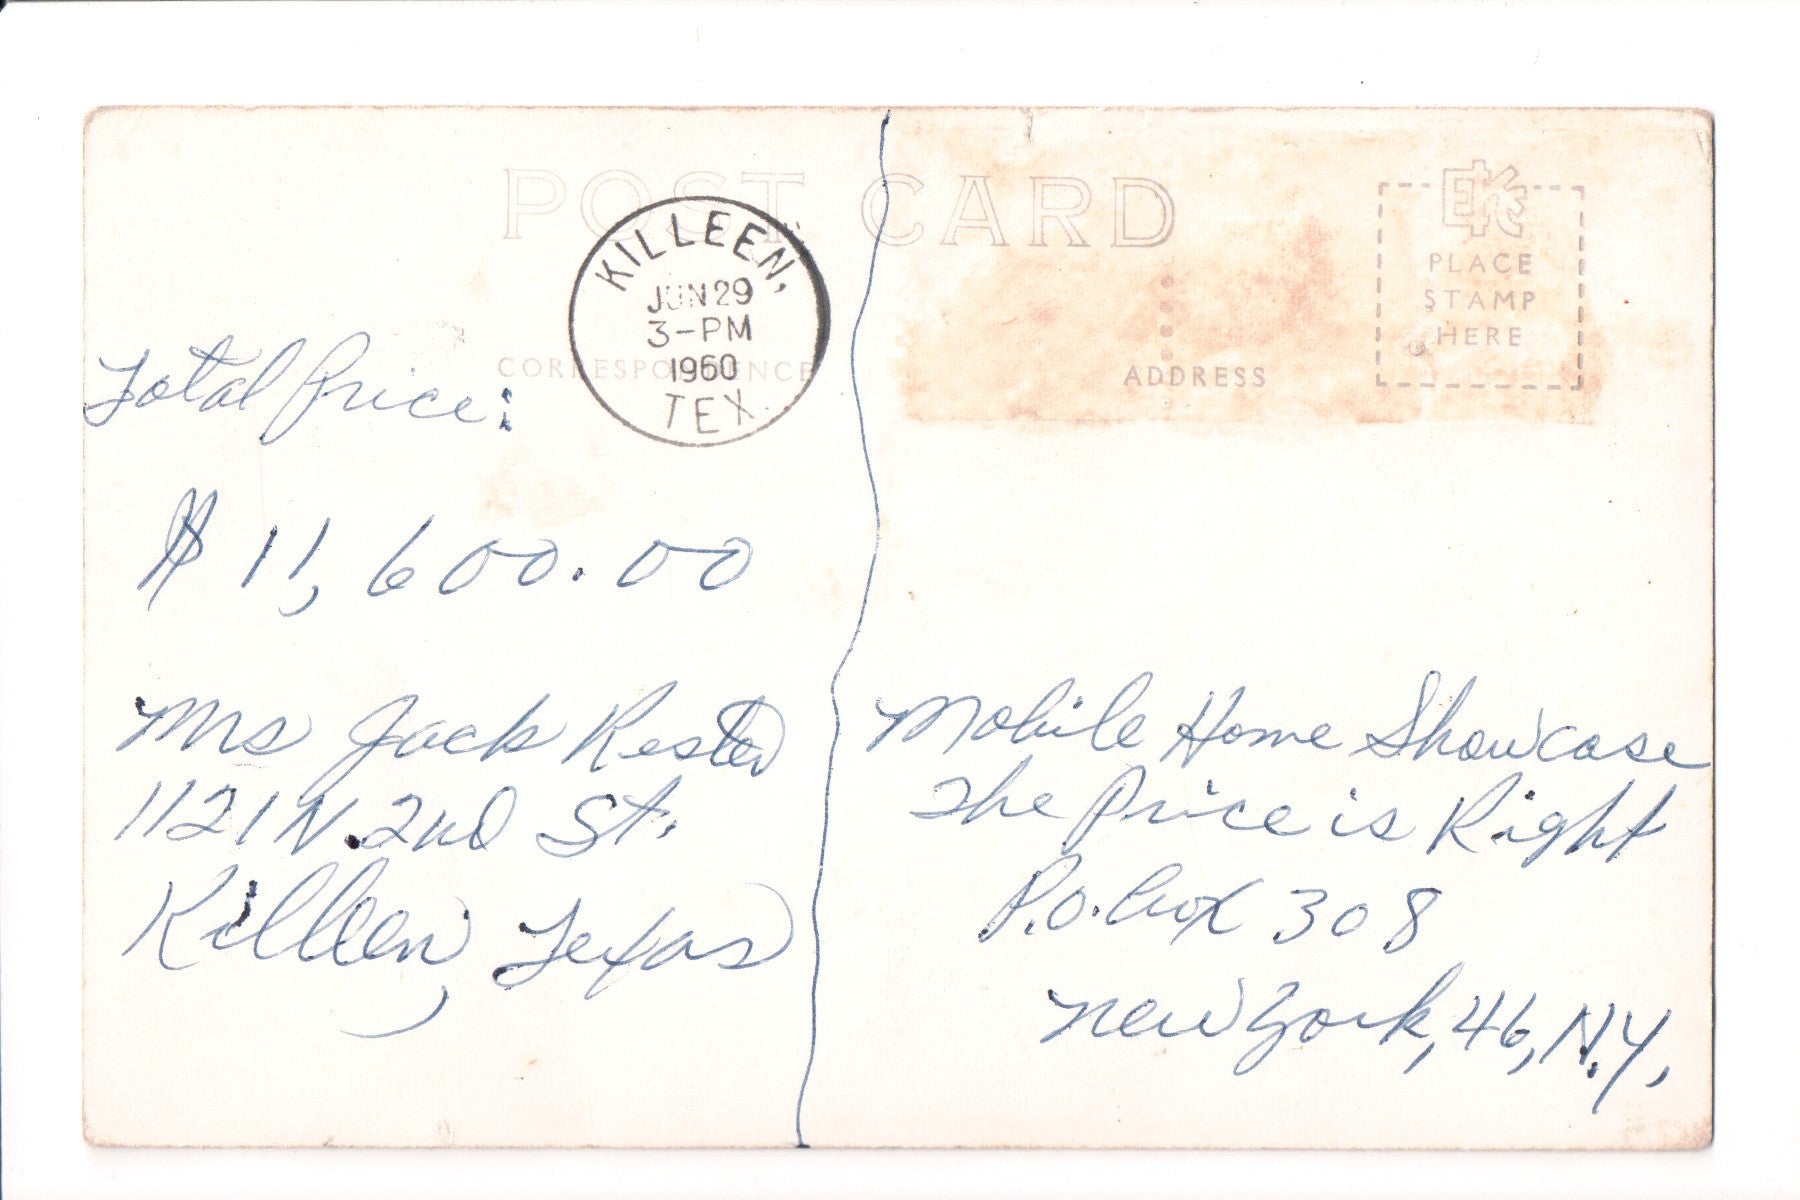 POST CARD
KILLEEN,
JUN 29
3-PM
1960
TEX.
CORRESPONDENCE
ADDRESS
EKC
PLACE
STAMP
HERE
Total Price:
$11,600.00
Mrs Jack Rester
1121 N. 2nd St.
Killeen, Texas
Mobile Home Showcase
The Price is Right
P.O. Box 308
New York, 46, N.Y.